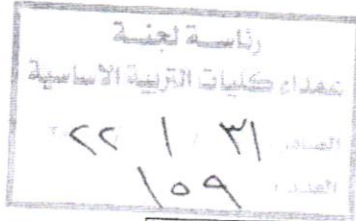 رئاسة لجنة
عمداء كليات التربية الاساسية
الصادر: ٣١ / ١ / ٢٢
العدد: ١٥٩